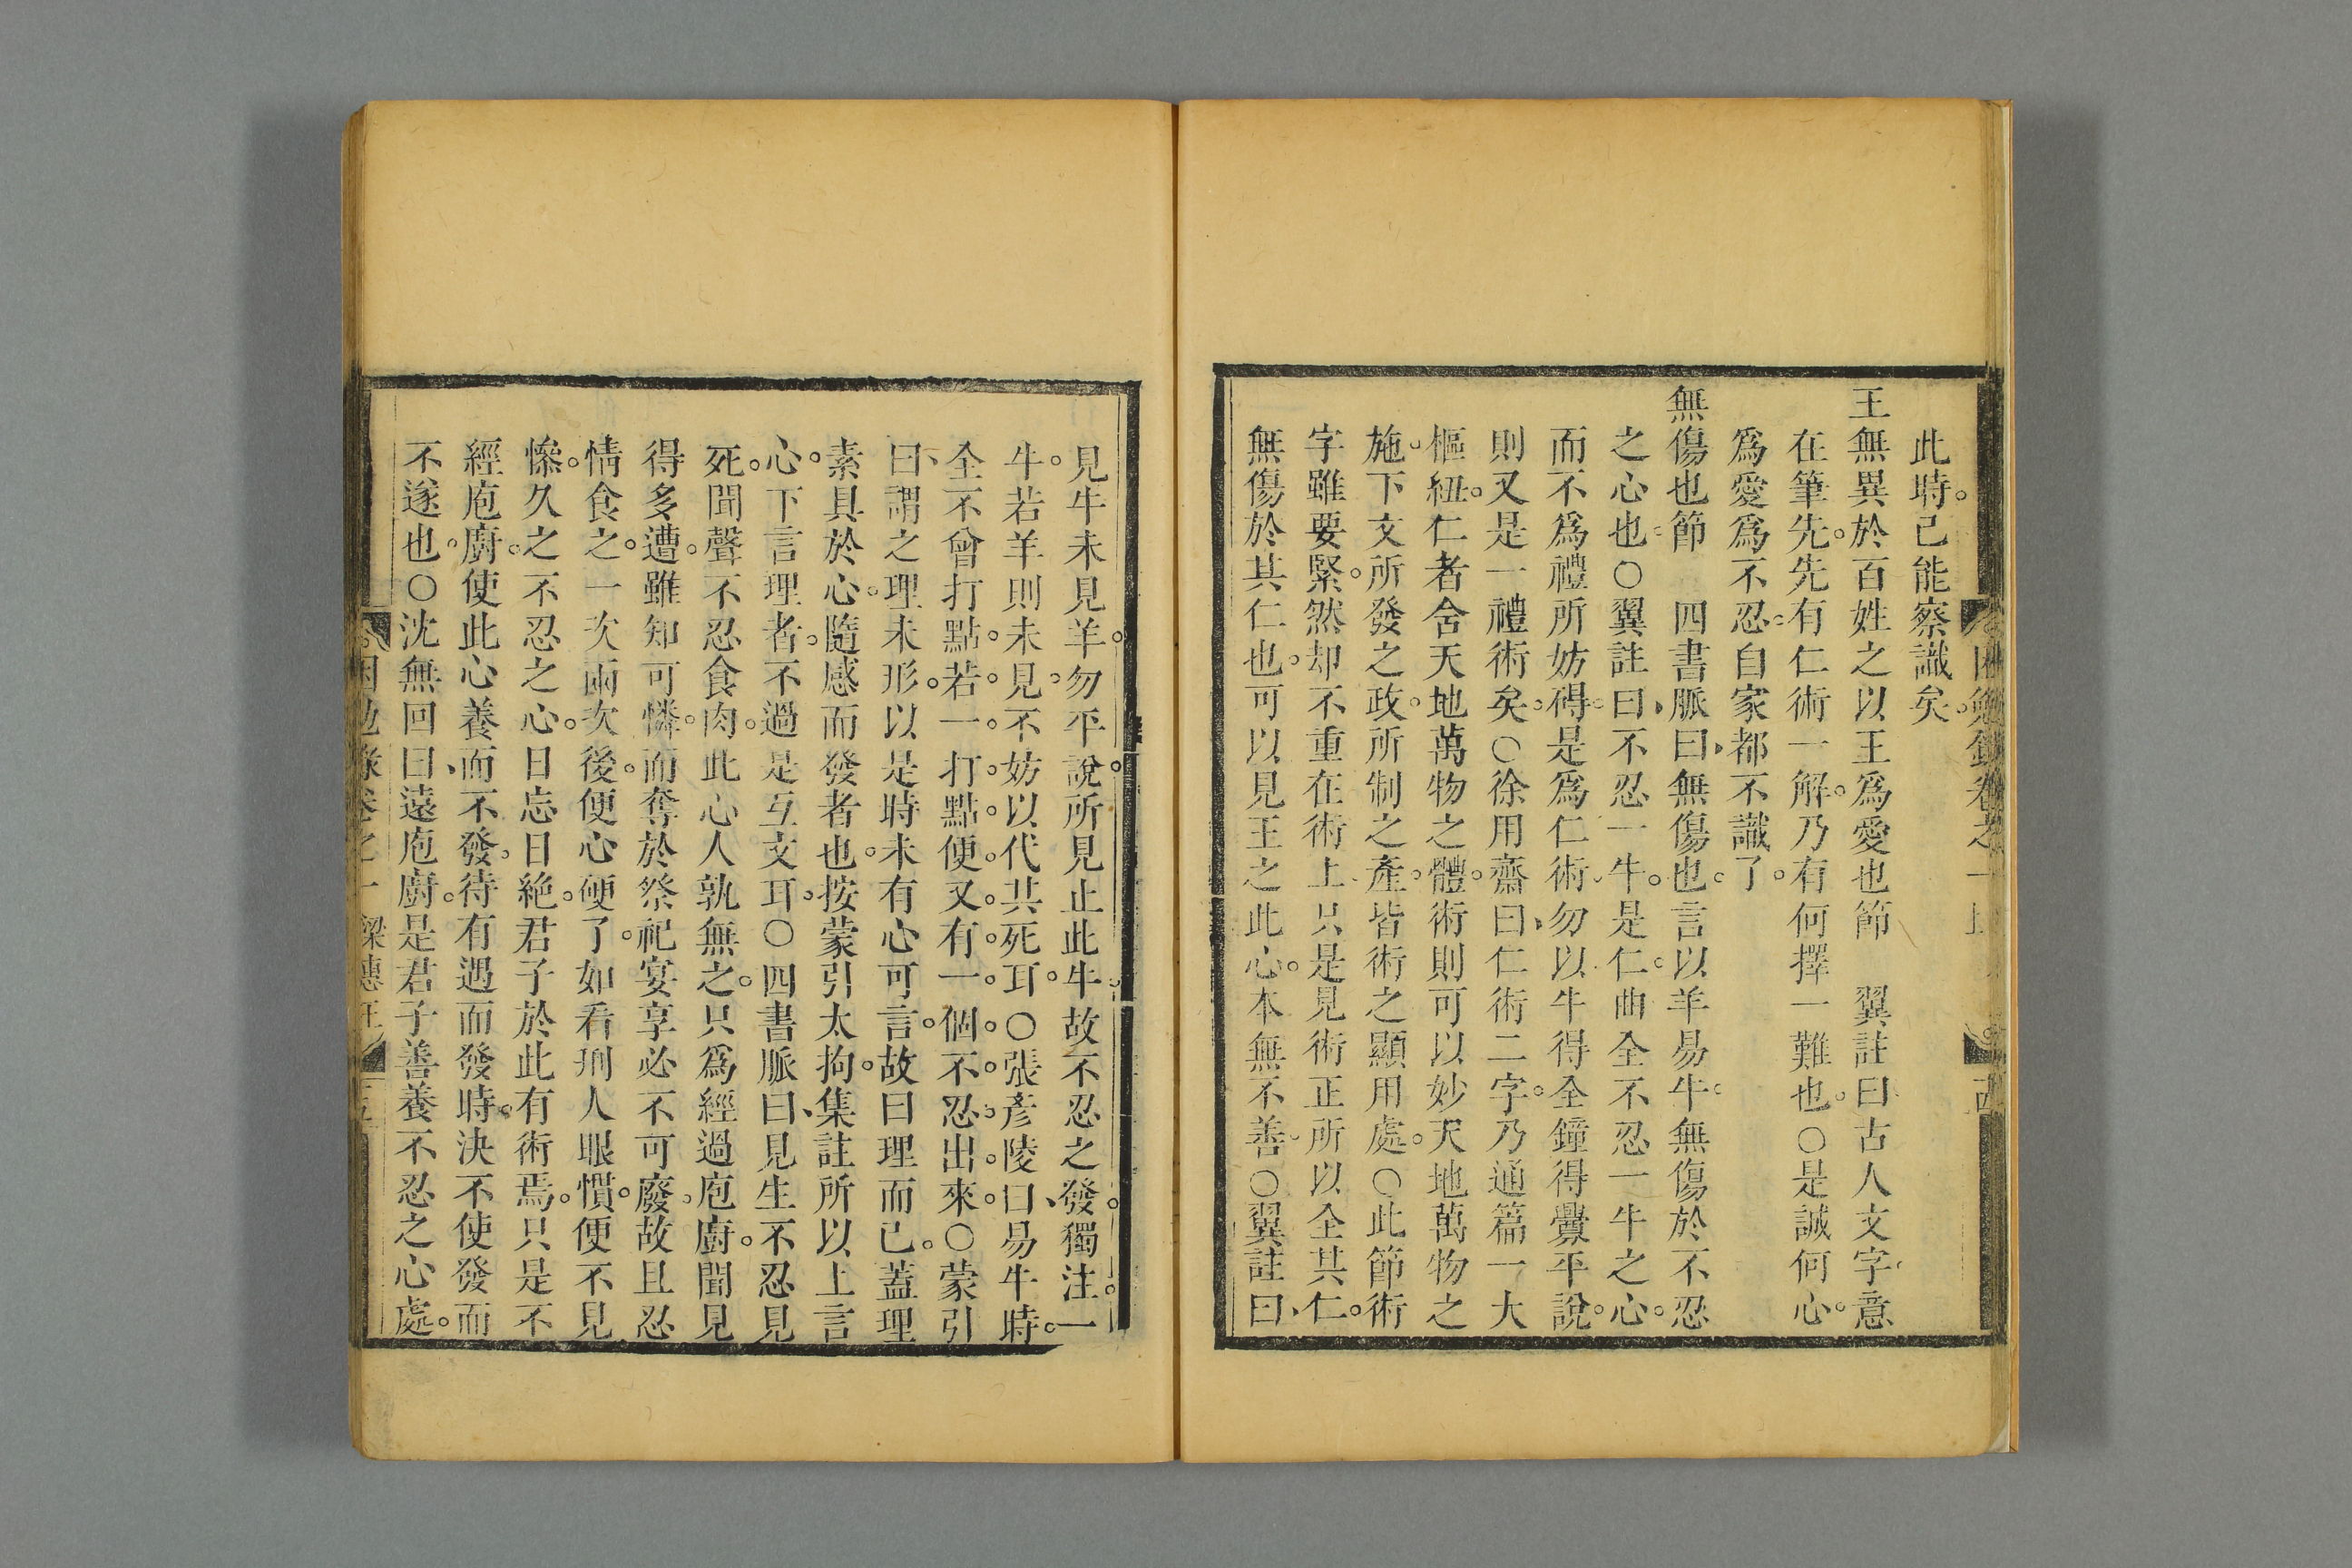 此時。已能察識矣。
王無異於百姓之以王爲愛也節　翼註曰古人文字意
在筆先。先有仁術一解。乃有何擇一難也。○是誠何心。
爲愛爲不忍。自家都不識了。
無傷也節　四書脈曰、無傷也。言以羊易牛。無傷於不忍
之心也。○翼註曰、不忍一牛。是仁。曲全不忍一牛之心。
而不爲禮所妨碍。是爲仁術。勿以牛得全鐘得釁平說。
則又是一禮術矣。○徐用齋曰、仁術二字。乃通篇一大
樞紐。仁者舍天地萬物之體。術則可以妙天地萬物之
施。下文所發之政。所制之產。皆術之顯用處。○此節術
字雖要緊。然却不重在術上。只是見術正所以全其仁。
無傷於其仁也。可以見王之此心。本無不善。○翼註曰、
見牛未見羊。勿平說。所見止此牛。故不忍之發。獨注。一
牛。若羊則未見。不妨以代其死耳。○張彥陵曰、易牛時。
全不曾打點。若一打點。便又有一個不忍出來。○蒙引
曰、謂之理未形。以是時未有心可言。故曰理而已。蓋理
素具於心。隨感而發者也。按蒙引太拘。集註所以上言
心。下言理者。不過是互文耳。○四書脈曰、見生不忍見
死。聞聲不忍食肉。此心人孰無之。只爲經過庖廚。聞見
得多遭。雖知可憐。而奪於祭祀宴享必不可廢。故且忍
情食之。一次兩次後。便心便了。如看刑人眼慣。便不見
慘。久之不忍之心。日忘日絶。君子於此有術焉。只是不
經庖廚。使此心養而不發。待有遇而發時。決不使發而
不遂也。○沈無回曰、遠庖廚。是君子善養不忍之心處。